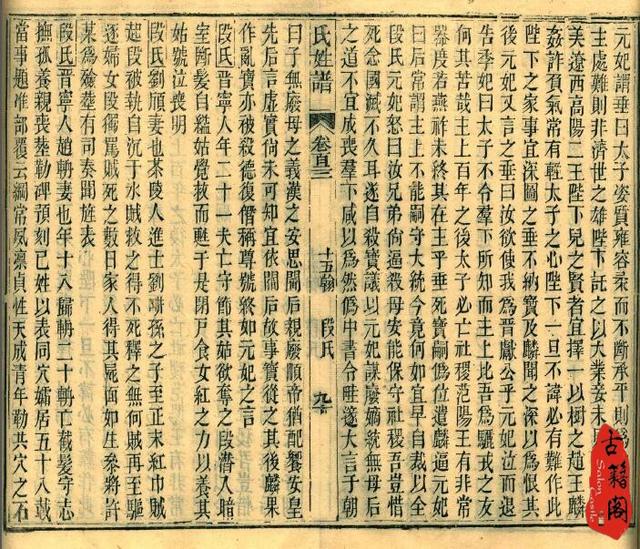 元妃謂垂曰太子姿質雍容柔而不斷承平則為
主處難則非濟世之雄陛下託之以大業妾未
美遼西高陽二王陛下兒之賢者宜擇一以樹之趙王麟
姦詐負氣常有輕太子之心陛下一旦不諱必有難作此
陛下之家事宜深圖之垂不納寶及麟聞之深以為恨其
後元妃又言之垂曰汝欲使我為晉獻公乎元妃泣而退
告季妃曰太子不令羣下所知而主上比吾為驪戎之女
何其苦哉主上百年之後太子必亡社稷范陽王有非常
器度若燕祚未終其在王乎垂死寶嗣偽位遣麟逼元妃
曰后常謂主上不能嗣守大統今竟何如宜早自裁以全
段氏元妃怒曰汝兄弟尚逼殺母安能保守社稷吾豈惜
死念國滅不久耳遂自殺寶議以元妃謀廢嫡統無母后
之道不宜成喪羣下咸以為然偽中書令眭邃大言于朝
氏姓譜
卷百三
十五翰
段氏
九十
曰子無廢母之義漢之安思閻后親廢順帝猶配饗安皇
先后言虛實尚未可知宜依閻后故事寶從之其後麟果
作亂寶亦被殺德復僭稱尊號終如元妃之言
段氏晉寧人年二十一夫亡守節其姑欲奪之段潛入暗
室斷髮自縊姑覺救而甦于是閉戶食女紅之力以養其
姑號泣喪明
段氏劉頎妻也茶陵人進士劉畊孫之子至正末紅巾賊
起段被執自沉于水賊救之得不死釋之無何賊再至驅
逐婦女段獨罵賊死之數日家人得其屍面如生叅將許
某為殮塟有司奏聞旌表
段氏晉寧人趙軿妻也年十八歸軿二十軿亡截髮守志
撫孤養親喪塟勒碑預刻己姓以表同穴孀居五十八載
當事題准部覆云綱常夙稟貞性天成青年勒共穴之石
古籍閣
Salon Castle